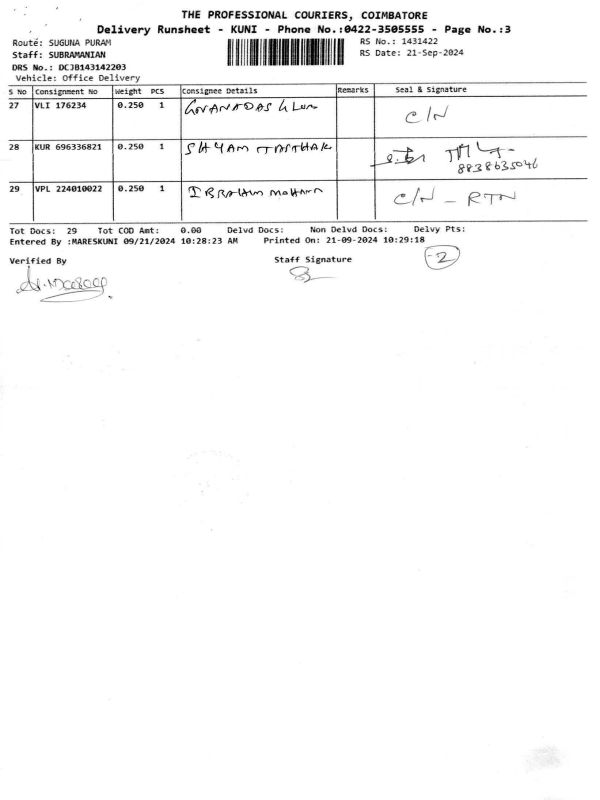 THE PROFESSIONAL COURIERS, COIMBATORE
Delivery Runsheet - KUNI - Phone No.:0422-3505555 - Page No.:3
Route: SUGUNA PURAM
RS No.: 1431422
Staff: SUBRAMANIAN
RS Date: 21-Sep-2024
DRS No.: DCJB143142203
Vehicle: Office Delivery
S No Consignment No Weight PCS Consignee Details Remarks Seal & Signature
27 VLI 176234 0.250 1
C/N
28 KUR 696336821 0.250 1 SHYAM
8838635046
29 VPL 224010022 0.250 1 IBRAHIM
C/N - RTN
Tot Docs: 29 Tot COD Amt: 0.00 Delvd Docs: Non Delvd Docs: Delvy Pts:
Entered By :MARESKUNI 09/21/2024 10:28:23 AM Printed On: 21-09-2024 10:29:18
Verified By Staff Signature
-2